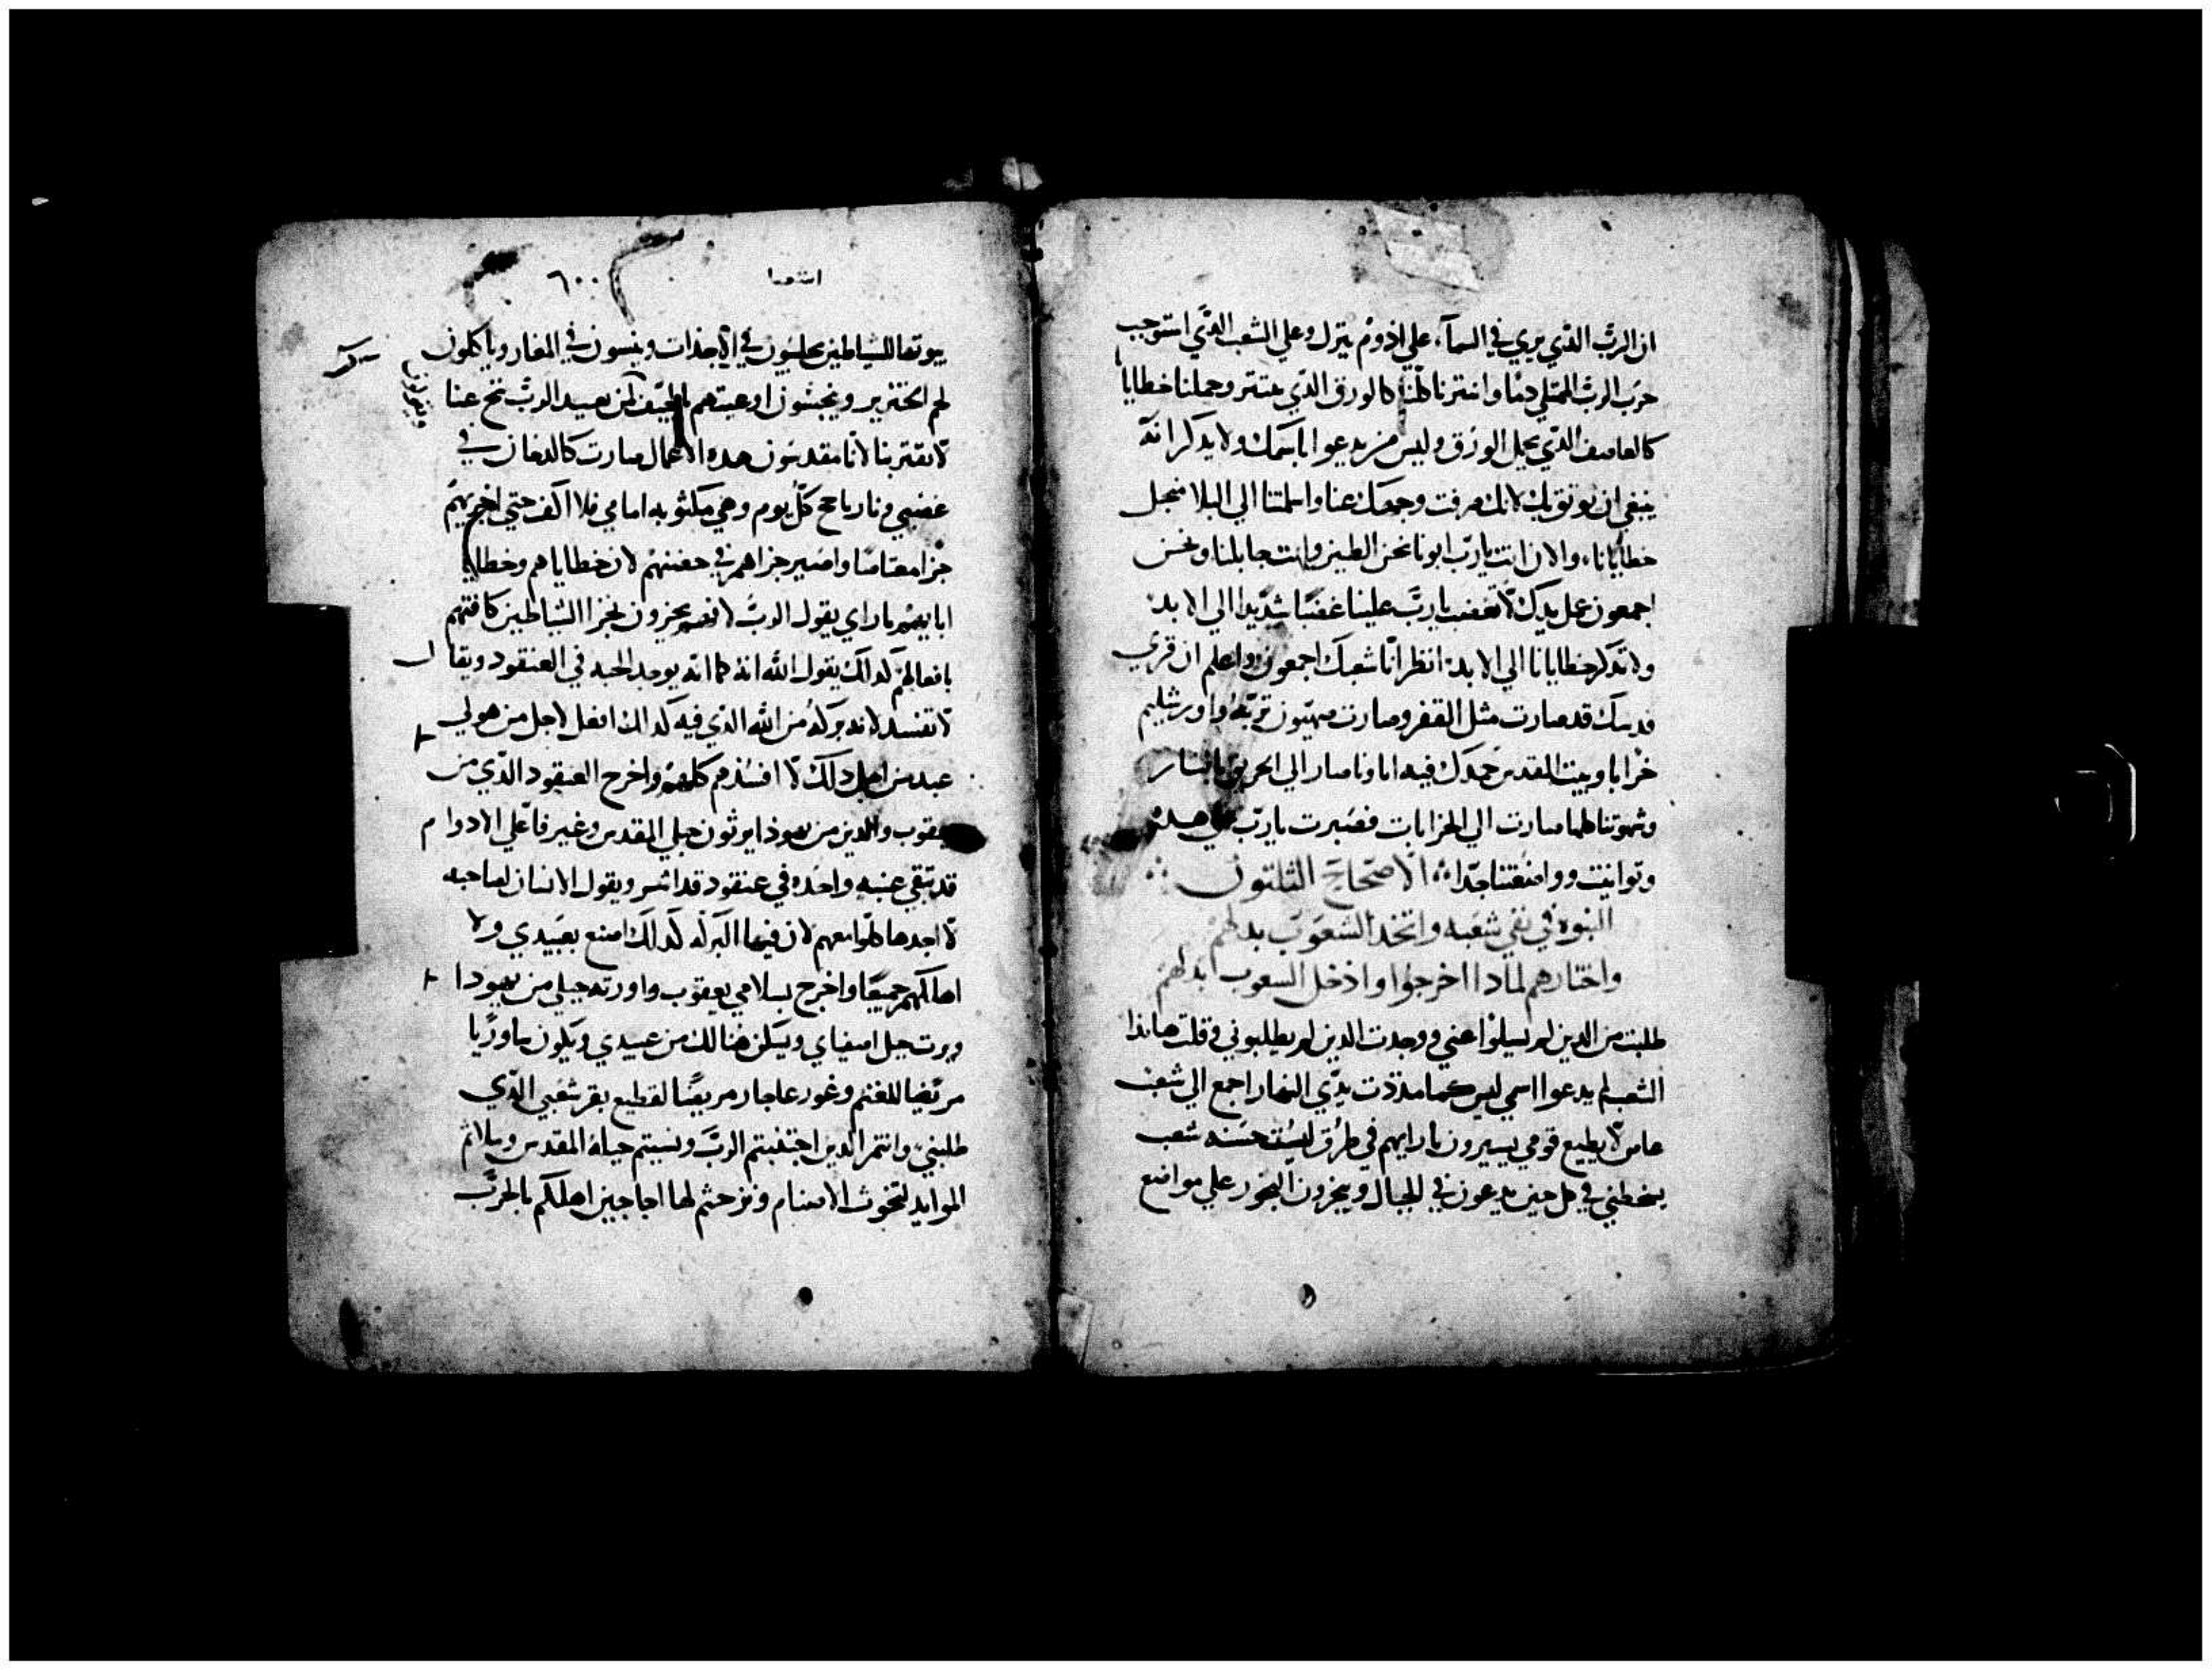 ان الرب الذي يري في السمآء علي اذوم ينزل وعلي الشعب الذي استوجب
حرب الرب الممتلي دمًا وانتثرنا كلنا كالورق الذي ينتثر وحملنا خطايانا
كالعاصف الذي يحمل الورق وليس من يدعوا باسمك ولا يدكر انه
ينبغي ان يوتق بك لانك صرفت وجهك عنا واسلمتنا الي البلا من اجل
خطايانا والان انت يارب ابونا نحن الطين وانت جابلنا ونحن
اجمعون عمل يديك لا تغضب يارب علينا غضبًا شديدا الي الابد
ولا تدكر خطايانا الي الابد انظر انا شعبك اجمعون واعلم ان قري
قدسك قد صارت مثل القفر وصارت صهيون تربه واورشليم
خرابا وبيت المقدس حمدك فيه اباونا صار الي الحريق بالنار
وشهوتنا كلها صارت الي الخرابات فصبرت يارب علي هده
وتوانيت وواضعتنا جدا الاصحاح الثلثون
النبوه في نفي شعبه واتخد الشعوب بدلهم
واختارهم لمادا اخرجوا وادخل الشعوب ابدلهم
طلبت من الدين لم يسلوا عني ووجدت الدين لم يطلبوني وقلت هاندا
الشعب لم يدعوا اسمي مددت يدي النهار اجمع الي شعب
عاص لا يطيع قومي يسيرون بارايهم في طرق ليست حسنه شعب
يسخطني في كل حين يدعون في الجبال ويبخرون البخور علي مواضع
اشعيا
٦٠٠
بيوتها للشياطين يجلسون في الاجدات وينسون في المغار وياكلون
لحم الخنزير وينجسون اوعيتهم بالجيف لكن بعيد الرب تنح عنا
لا تقترب بنا لانا مقدسون هده الاعمال صارت كالدخان في
غضبي ونار تاجج كل يوم وهي مكتوبه امامي فلا اكف حتي اجزيهم
جزا مضاعفا واصير جزاهم في حضنهم لان خطاياهم وخطايا
ابايهم باراي يقول الرب
بافعالهم كدلك يقول الله انه كما انه يوجد الحبه في العنقود ويقال
لا تفسد لانه بركه من الله الذي فيه كدلك افعل لاجل من هو لي
عبد من اجل دلك لا افسدهم كلهم واخرج العنقود الذي من
يعقوب والدين من يهودا يرثون جبلي المقدس وغير فاعلي الادوام
قد تبقي عنبه واحده في عنقود قد ويقول الانسان لصاحبه
لا اجدها لان فيها البركه كدلك اصنع بعبيدي ولا
اهلكهم جميعًا واخرج بسلامي يعقوب واورته جبلي من يهودا
ويرث جبل اصفياي ويسكن هنالك من عبيدي ويكون ماوريا
مربضا للغنم وغور عاجار مربضًا لقطيع بقر شعبي الذي
طلبني وانتم الدين اجتنبتم الرب ونسيتم حياه المقدس
الموايد لتخوت الاصنام ومزجتم لها اجاجين اهلككم بالحرب